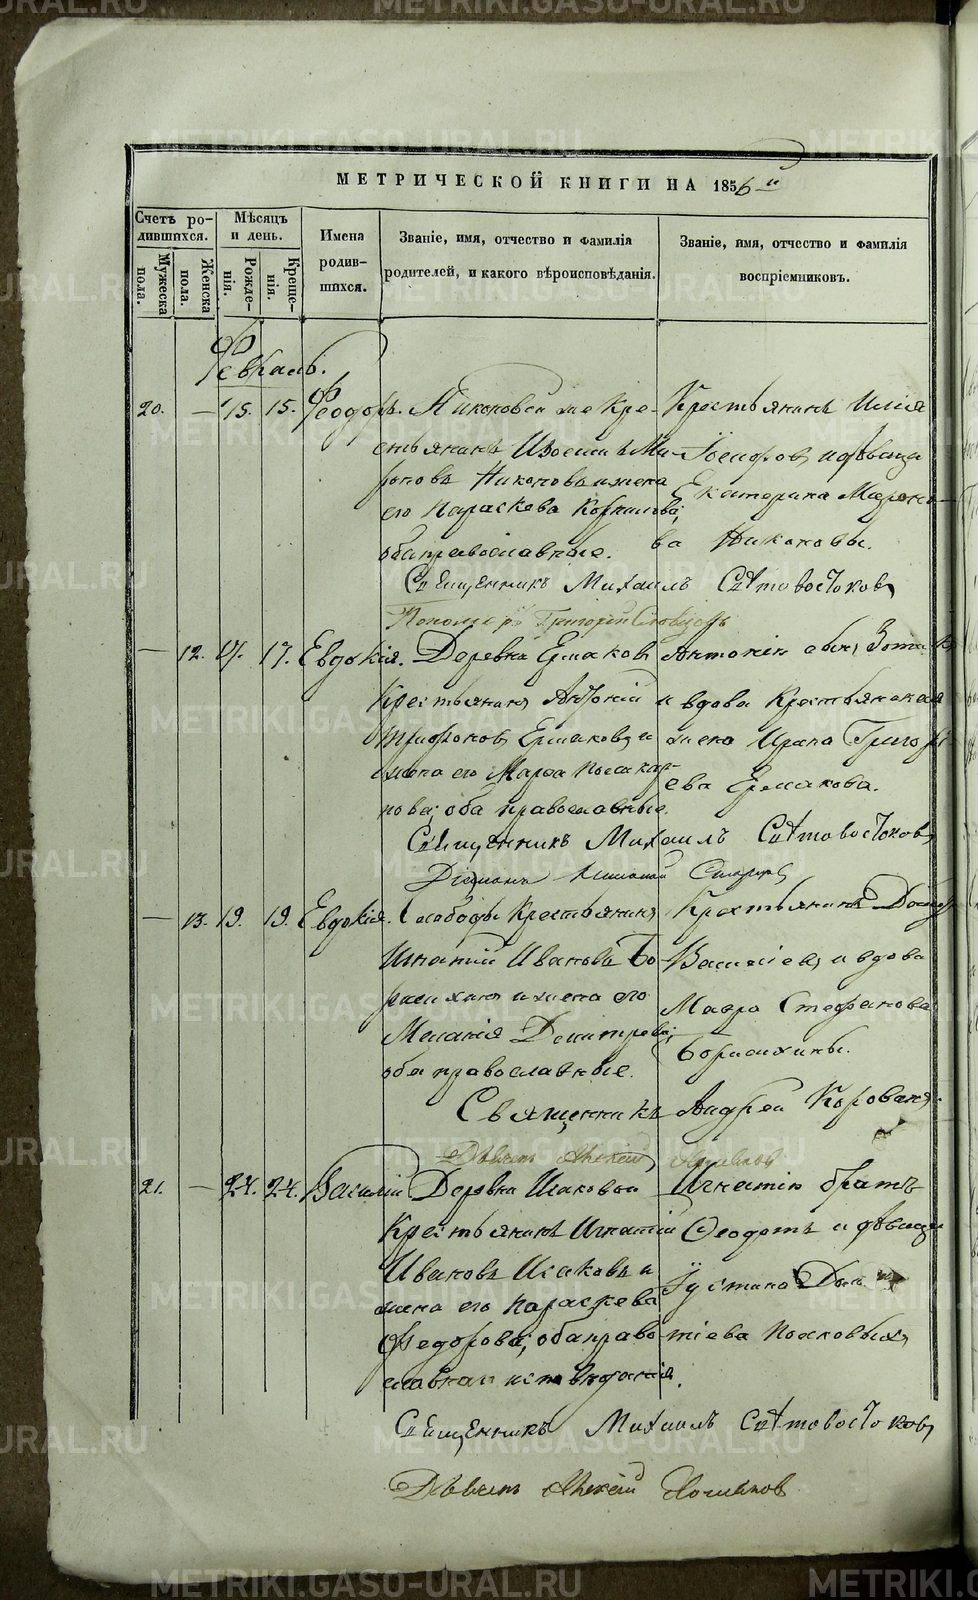 МЕТРИЧЕСКОЙ КНИГИ НА 1856й
Счетъ родившихся.
Мужеска пола.
Женска пола.
Мѣсяцъ и день.
Рожденія.
Крещенія.
Имена родившихся.
Званіе, имя, отчество и фамилія родителей, и какого вѣроисповѣданія.
Званіе, имя, отчество и фамилія воспріемниковъ.
Февраль.
20. — 15. 15. Феодоръ.
Никоновой же Кре-
стьянинъ Изосимъ Ми-
роновъ Никоновъ и жена
его Параскева Корнилова;
оба православные.
Крестьянинъ Илия
и дѣвица
Екатерина Мироно-
ва Никоновы.
Священникъ Михаилъ Свѣтовостоковъ
Пономарь Григорій Словцовъ
— 12. 17. 17. Евдокія.
Деревни Ермаковой
Крестьянинъ Антоній
Трифоновъ Ермаковъ и
жена его Марѳа Поликар-
пова; оба православные.
Антонію сынъ Зотикъ
и вдова Крестьянская
жена Ирина Григорь
ева Ермакова.
Священникъ Михаилъ Свѣтовостоковъ
Діаконъ
— 13. 19. 19. Евдокія.
Слободы Крестьянинъ
Игнатій Ивановъ Бо-
рисихинъ и жена его
Меланія Димитрева;
оба православные.
Крестьянинъ
Василіевъ и вдова
Мавра Стефанова
Борисихины.
Священникъ Андрей Корованъ
Дьячекъ Алексій
21. — 24. 24. Василій
Деревни Исаковой
Крестьянинъ Игнатій
Ивановъ Исаковъ и
жена его Параскева
Федорова; оба право-
славнаго исповѣданія.
Игнатію братъ
Ѳеодотъ и дѣвица
Устина
тіева
Священникъ Михаилъ Свѣтовостоковъ
Дьячекъ Алексій